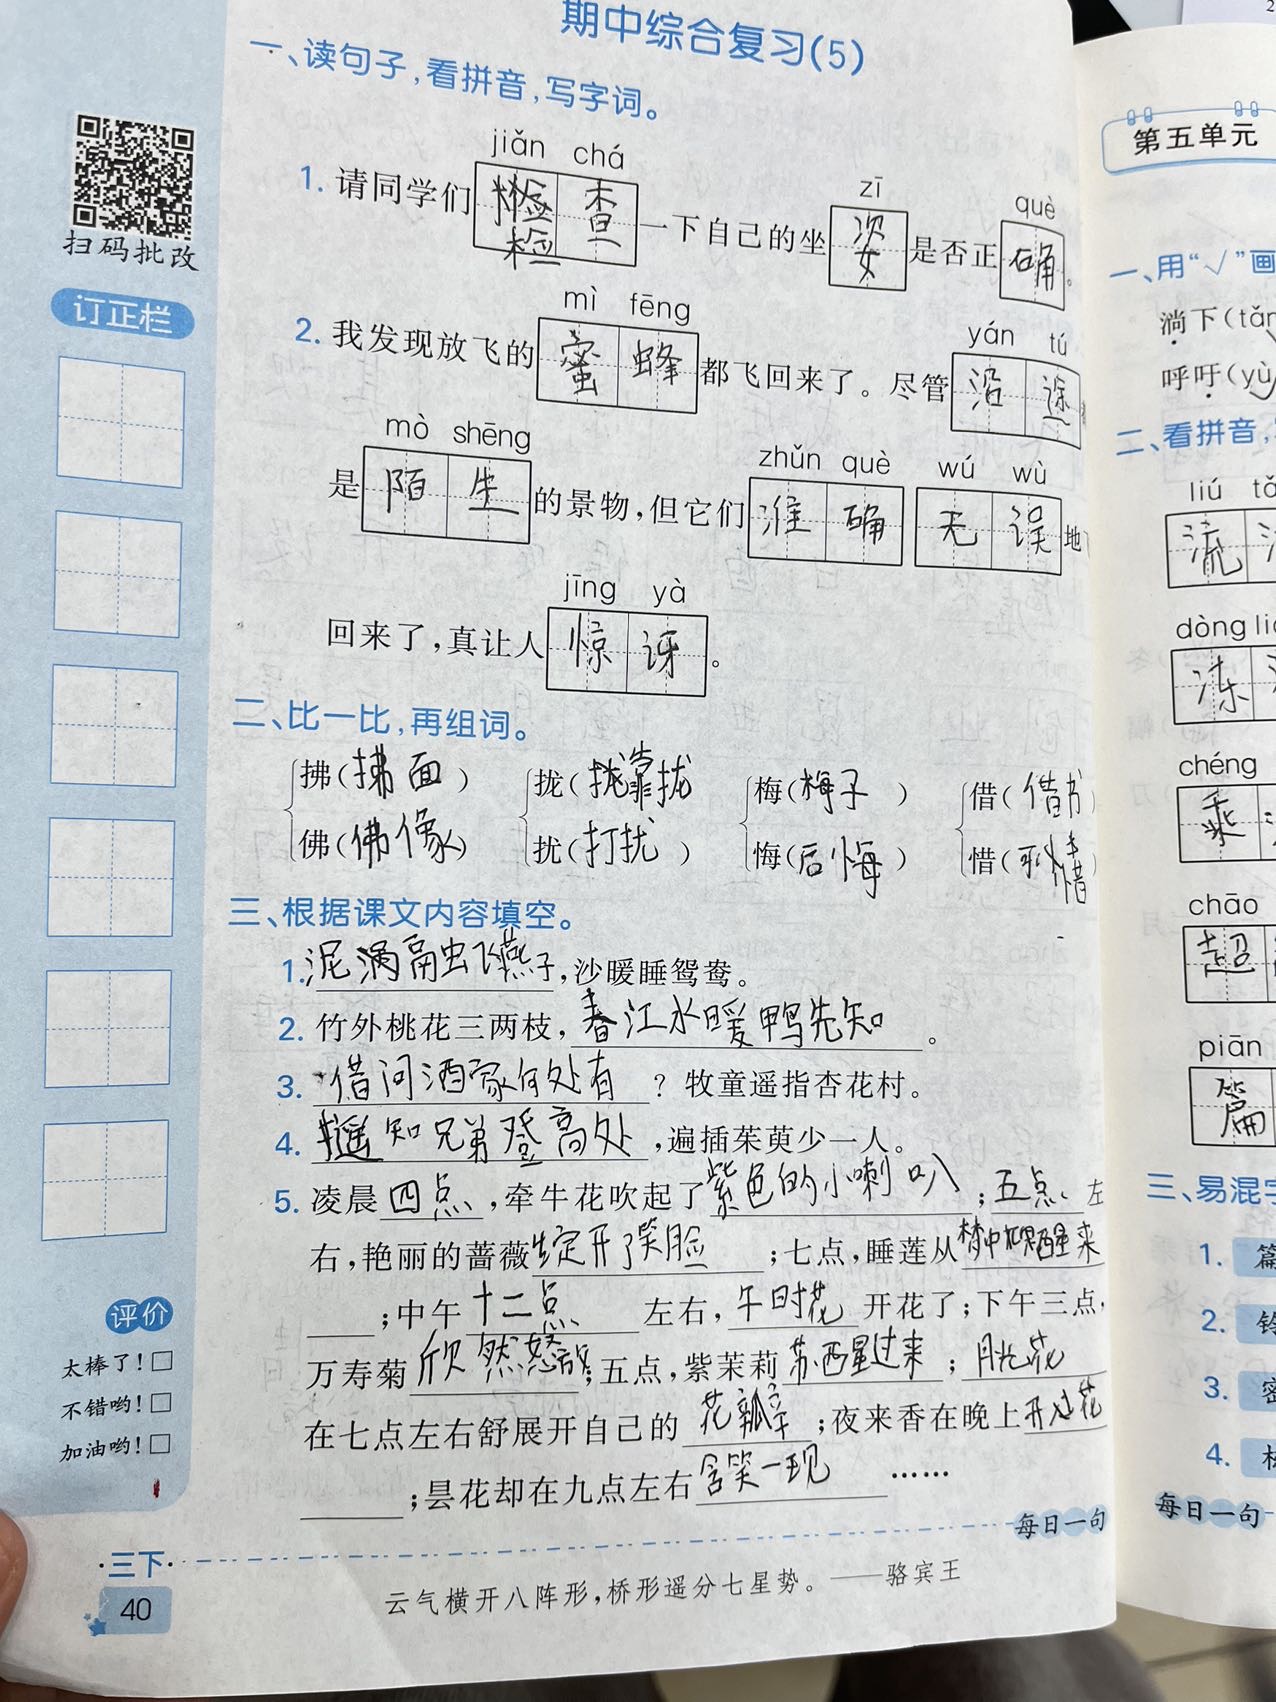 期中综合复习(5)
一、读句子,看拼音,写字词。
jiǎn chá
zī
què
1. 请同学们检查一下自己的坐姿是否正确。
检
mì fēng
yán tú
2. 我发现放飞的蜜蜂都飞回来了。尽管沿途
mò shēng
zhǔn què wú wù
是陌生的景物,但它们准确无误地
jīng yà
回来了,真让人惊讶。
二、比一比,再组词。
拂(拂面) 拢(拢靠拢 梅(梅子) 借(借书)
佛(佛像) 扰(打扰) 悔(后悔) 惜(可惜)
三、根据课文内容填空。
1. 泥 融飞燕子,沙暖睡鸳鸯。
2. 竹外桃花三两枝,春江水暖鸭先知。
3. 借问酒家何处有?牧童遥指杏花村。
4. 遥知兄弟登高处,遍插茱萸少一人。
5. 凌晨四点,牵牛花吹起了紫色的小喇叭;五点左
右,艳丽的蔷薇绽开了笑脸;七点,睡莲从梦中醒来
;中午十二点左右,午时花开花了;下午三点,
万寿菊欣然怒放;五点,紫茉莉苏醒过来;月光花
在七点左右舒展开自己的花瓣;夜来香在晚上开花
;昙花却在九点左右含笑一现……
每日一句
云气横开八阵形,桥形遥分七星势。——骆宾王
扫码批改
订正栏
评价
太棒了!□
不错哟!□
加油哟!□
三下
40
第五单元
一、用“√”画
淌下(tǎn
呼吁(yù
二、看拼音,
liú tǎ
流
dòng li
冻
chéng
乘
chāo
超
piān
篇
三、易混字
1. 篇
2. 铃
3. 密
4.
每日一句